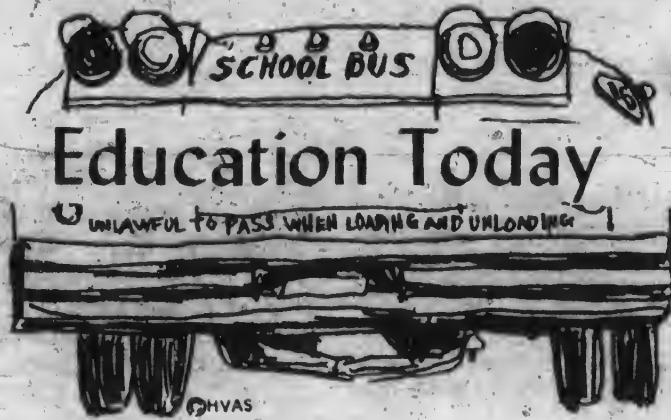 SCHOOL BUS
15
Education Today
UNLAWFUL TO PASS WHEN LOADING AND UNLOADING
HVAS